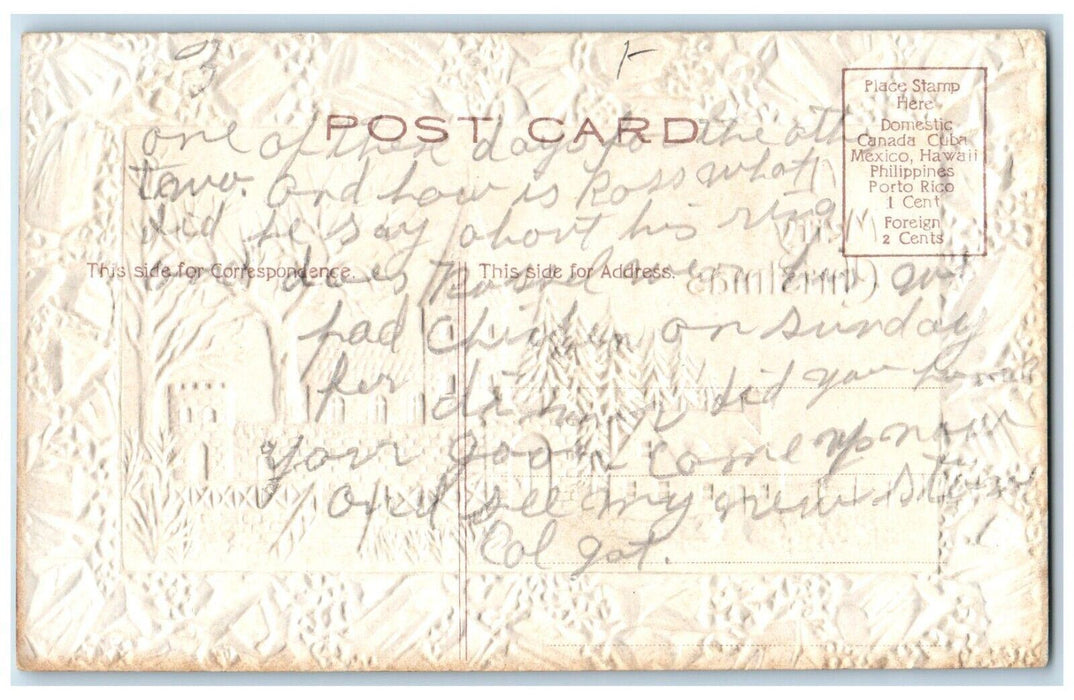 POST CARD
Place Stamp
Here
Domestic
Canada Cuba
Mexico, Hawaii
Philippines
Porto Rico
1 Cent
Foreign
2 Cents
This side for Correspondence.
This side for Address.
one of these days to the oth
two. and how is Ross what
did he say about his ring
and does we
had Chicken on Sunday
for dinner did you have
your goose come up now
and see my new
Col got.